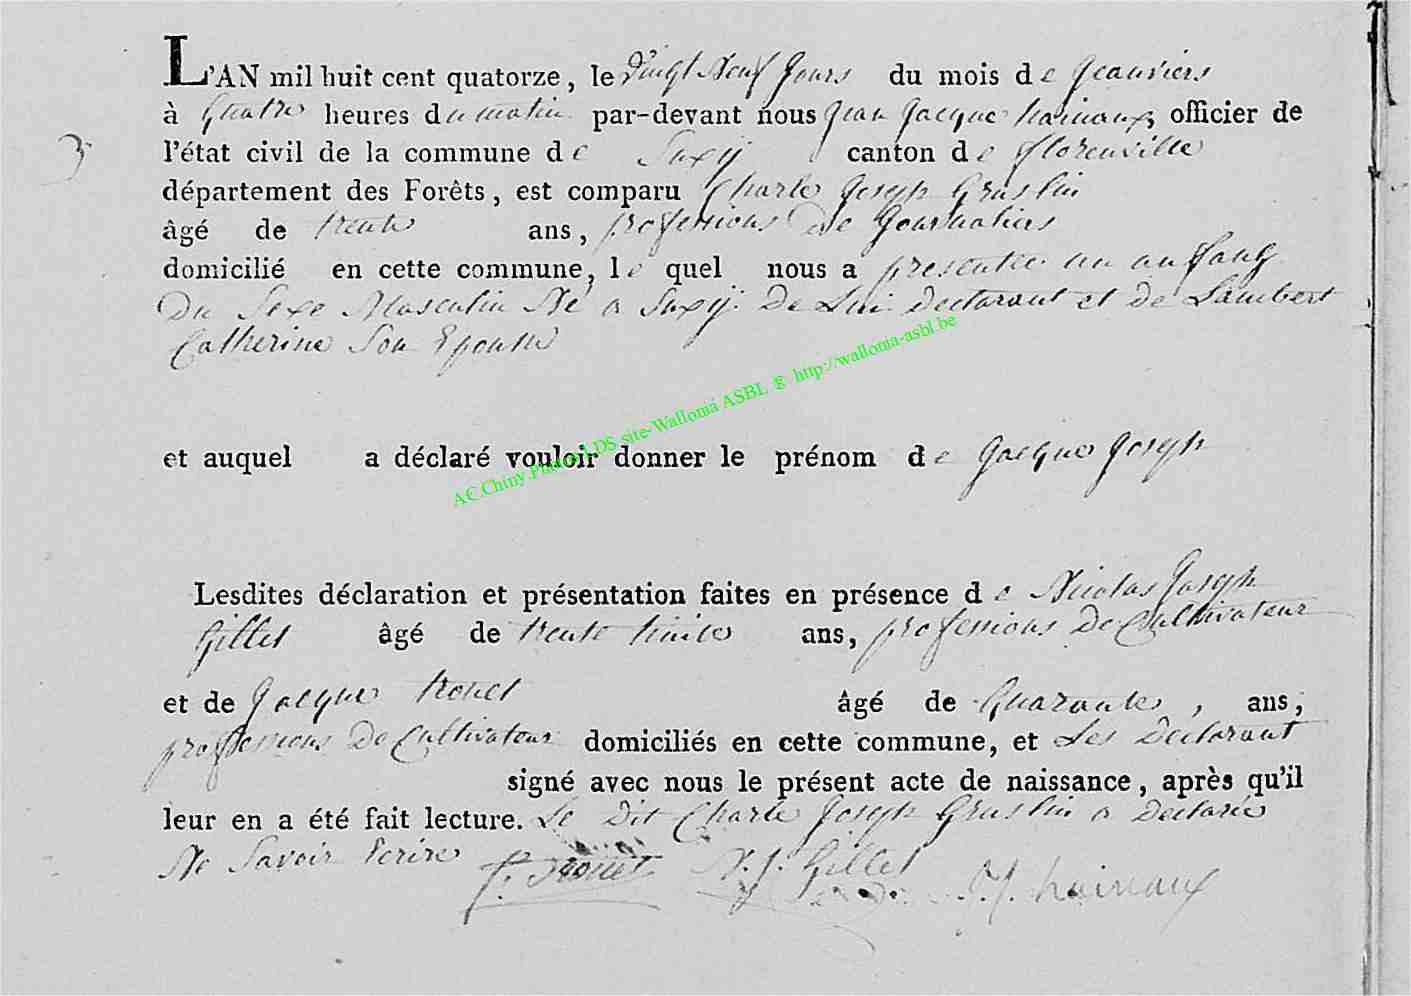 L'AN mil huit cent quatorze, le vingt Neuf Jours du mois de Jeanviers
à Quatre heures du matin par-devant nous Jean Jacque hainaux, officier de
3
l'état civil de la commune de Suxÿ canton de florenville
département des Forêts, est comparu Charle Joseph Gruslin
âgé de trente ans, professions De Journaliers
domicilié en cette commune, le quel nous a presentee un anfang
Du Sexe Masculin Né a Suxÿ De Lui declarant et de Lambert
Catherine Son Epouse
et auquel a déclaré vouloir donner le prénom de Jacque Joseph
AC.Chiny.Photos LDS site-Wallonia ASBL g http://wallonia-asbl.be
Lesdites déclaration et présentation faites en présence de Nicolas Joseph
Gillet âgé de trente huite ans, professions De Cultivateur
et de Jacque trouet âgé de Quarante, ans,
professions De Cultivateur domiciliés en cette commune, et Les Declarant
signé avec nous le présent acte de naissance, après qu'il
leur en a été fait lecture. Le Dit Charle Joseph Gruslin a Declaré
Ne Savoir Ecrire
N. J. Gillet J. J. hainaux